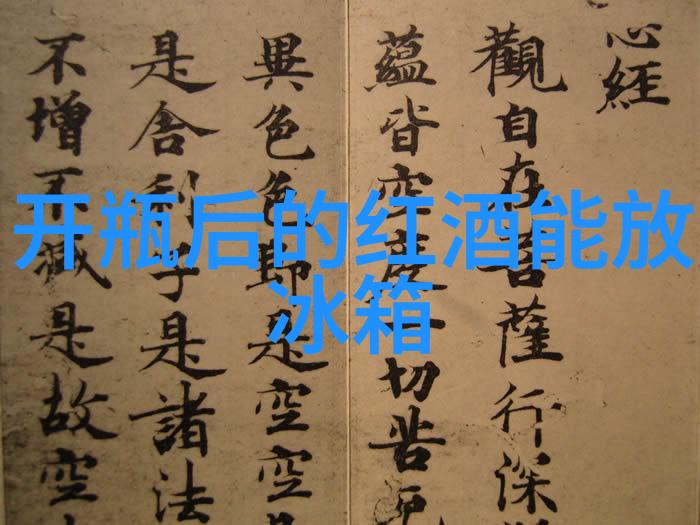 开瓶后的红酒能放
冰箱
心經
觀自在菩薩行深
蘊皆空度一切苦厄
異色色即是空空是
是舍利子是諸法
不增不減是故空